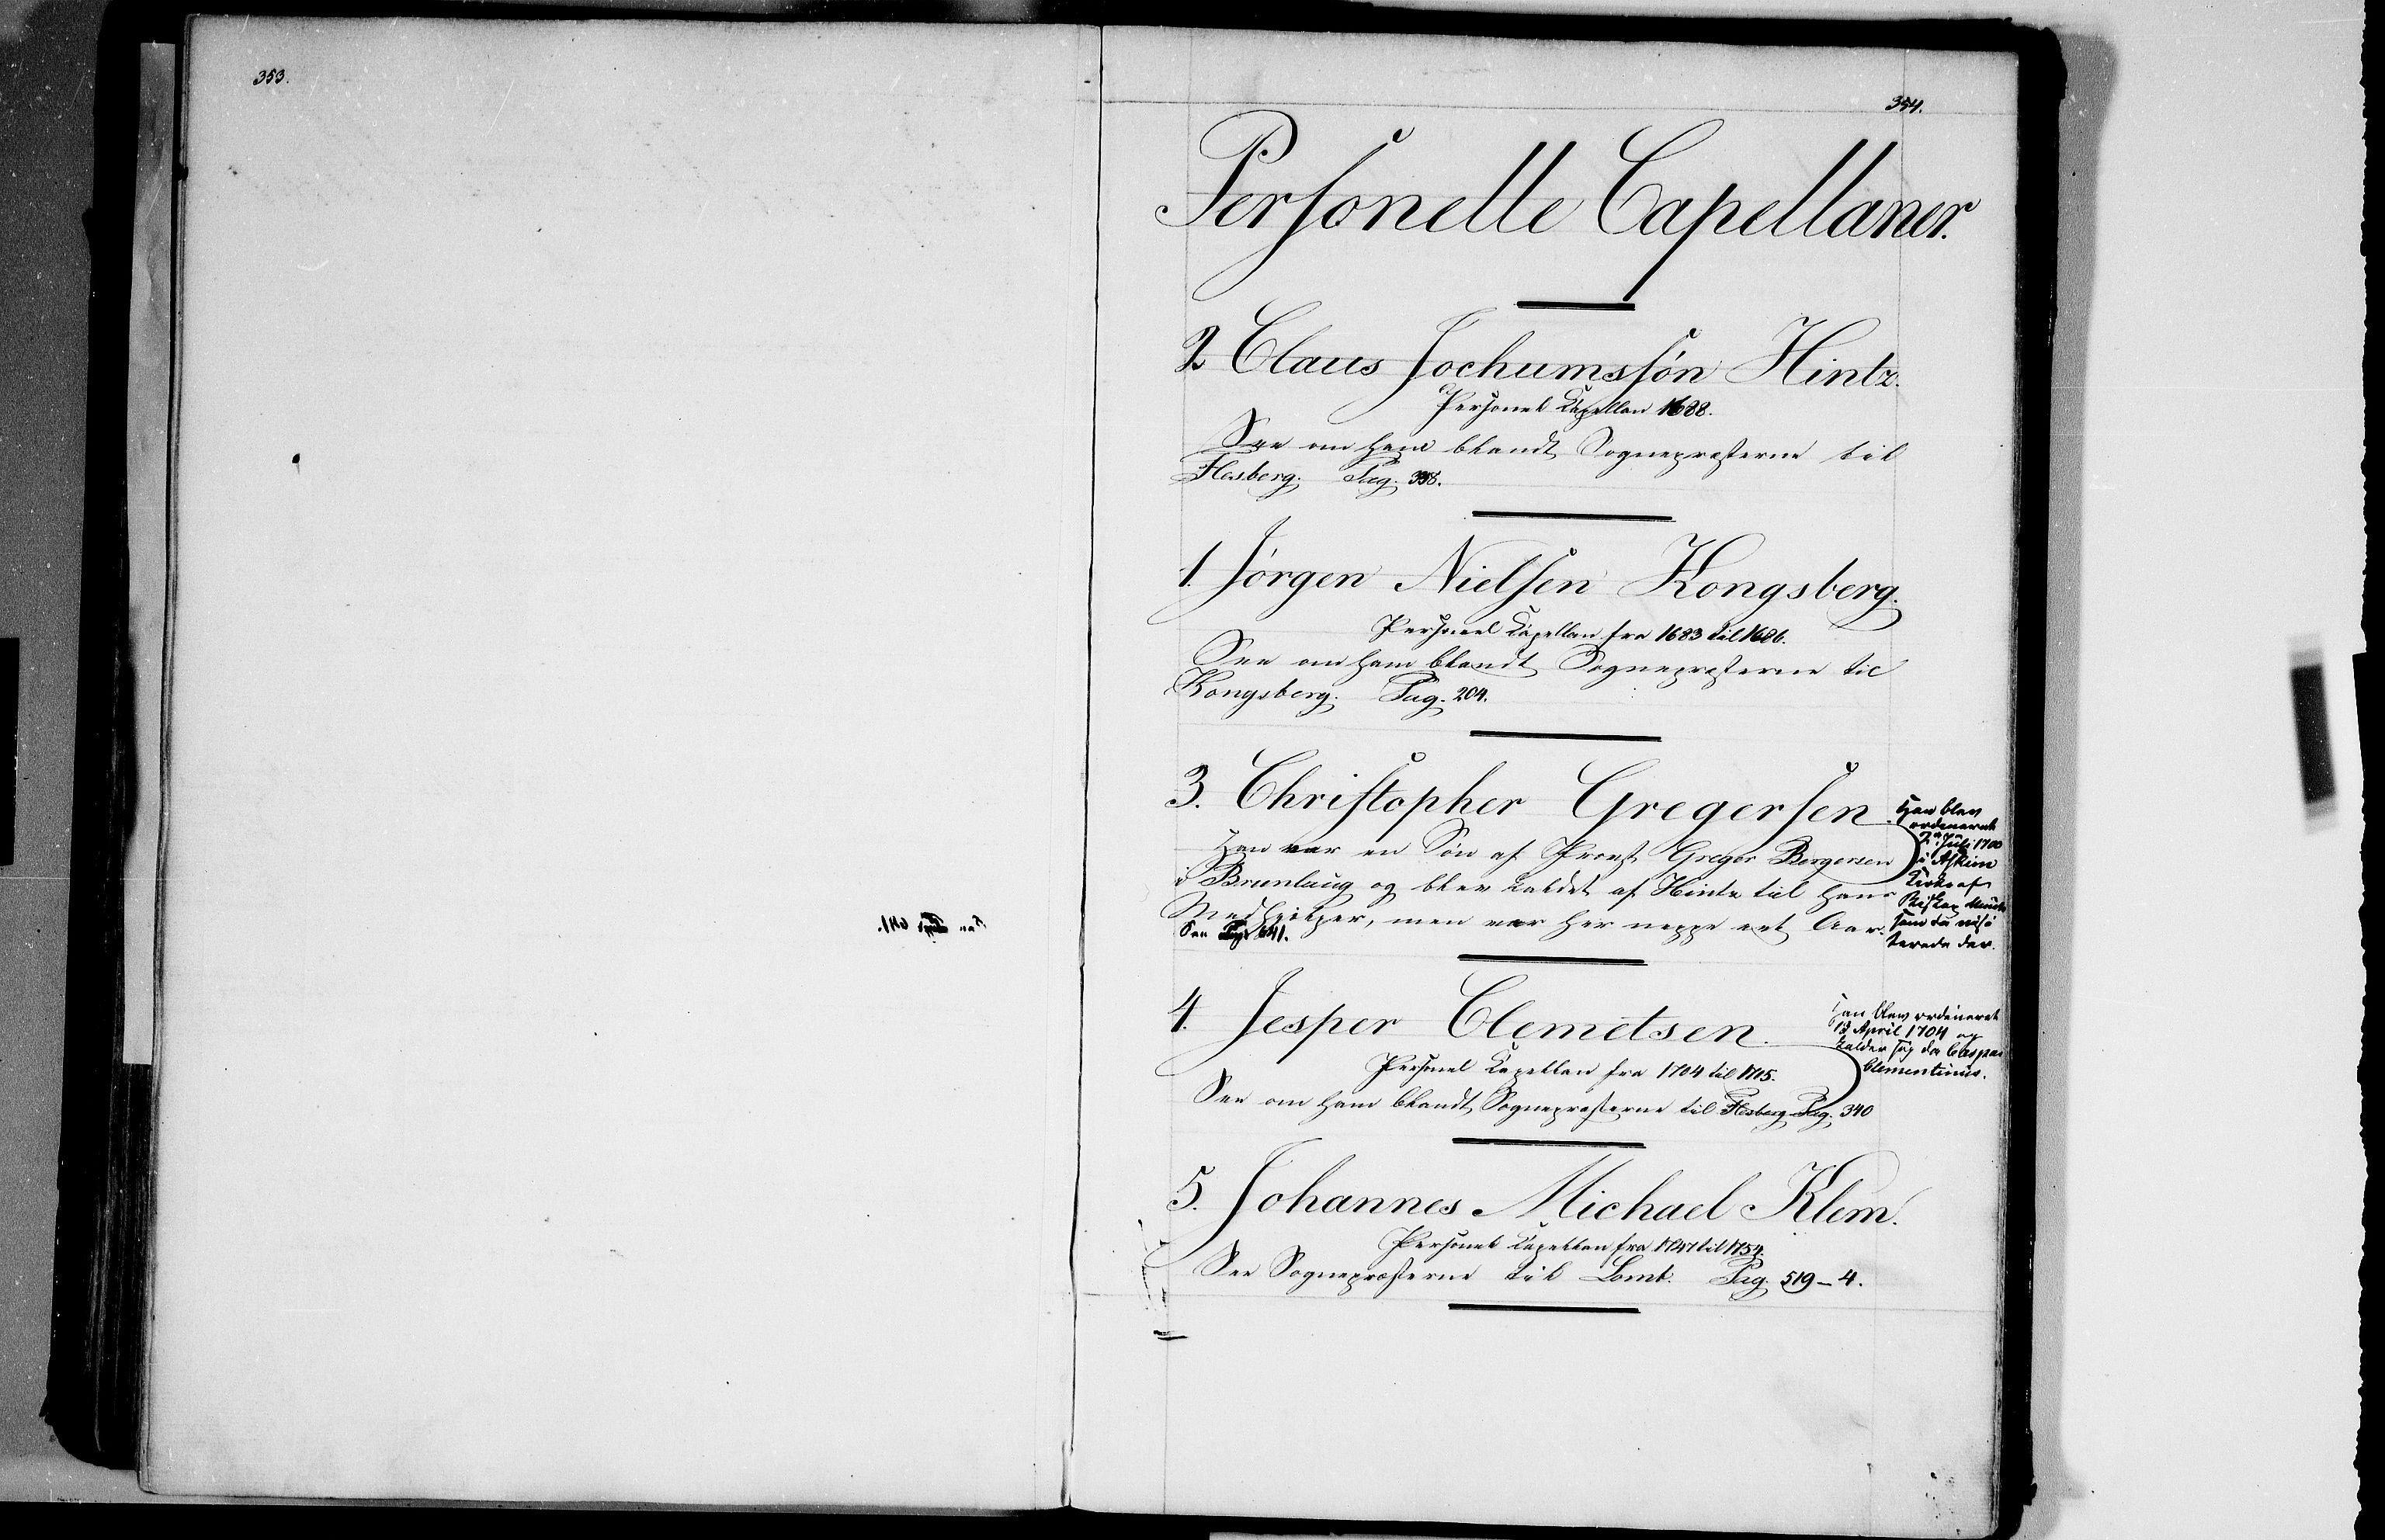 353.
354.
Personelle Capellaner.
2. Claus Jochumssøn Hintz.
Personel Capellan 1688.
See om ham blandt Sognepræsterne til
Flesberg. Pag. 338.
1. Jørgen Nielsen Kongsberg.
Personel Capellan fra 1683 til 1686.
See om ham blandt Sognepræsterne til
Kongsberg. Pag. 204.
3. Christopher Gregersen.
Han var en Søn af Provst Gregor Bergersen
i Brunlaug og blev kaldet af Hintz til hans
Medhjælper, men var her neppe eet Aar.
See Pag. 641.
Han blev
ordineret
Juli 1700
i Askim
Kirke af
Biskop Munch
som da visi
terede der.
4. Jesper Clemetsen.
Personel Capellan fra 1704 til 1705.
See om ham blandt Sognepræsterne til Flesberg Pag. 340
Han blev ordineret
18 April 1704 og
kalder sig da Caspar
Clementinus.
5. Johannes Michael Klem.
Personel Capellan fra 1747 til 1754.
See Sognepræsterne til Lomb. Pag. 519-4.